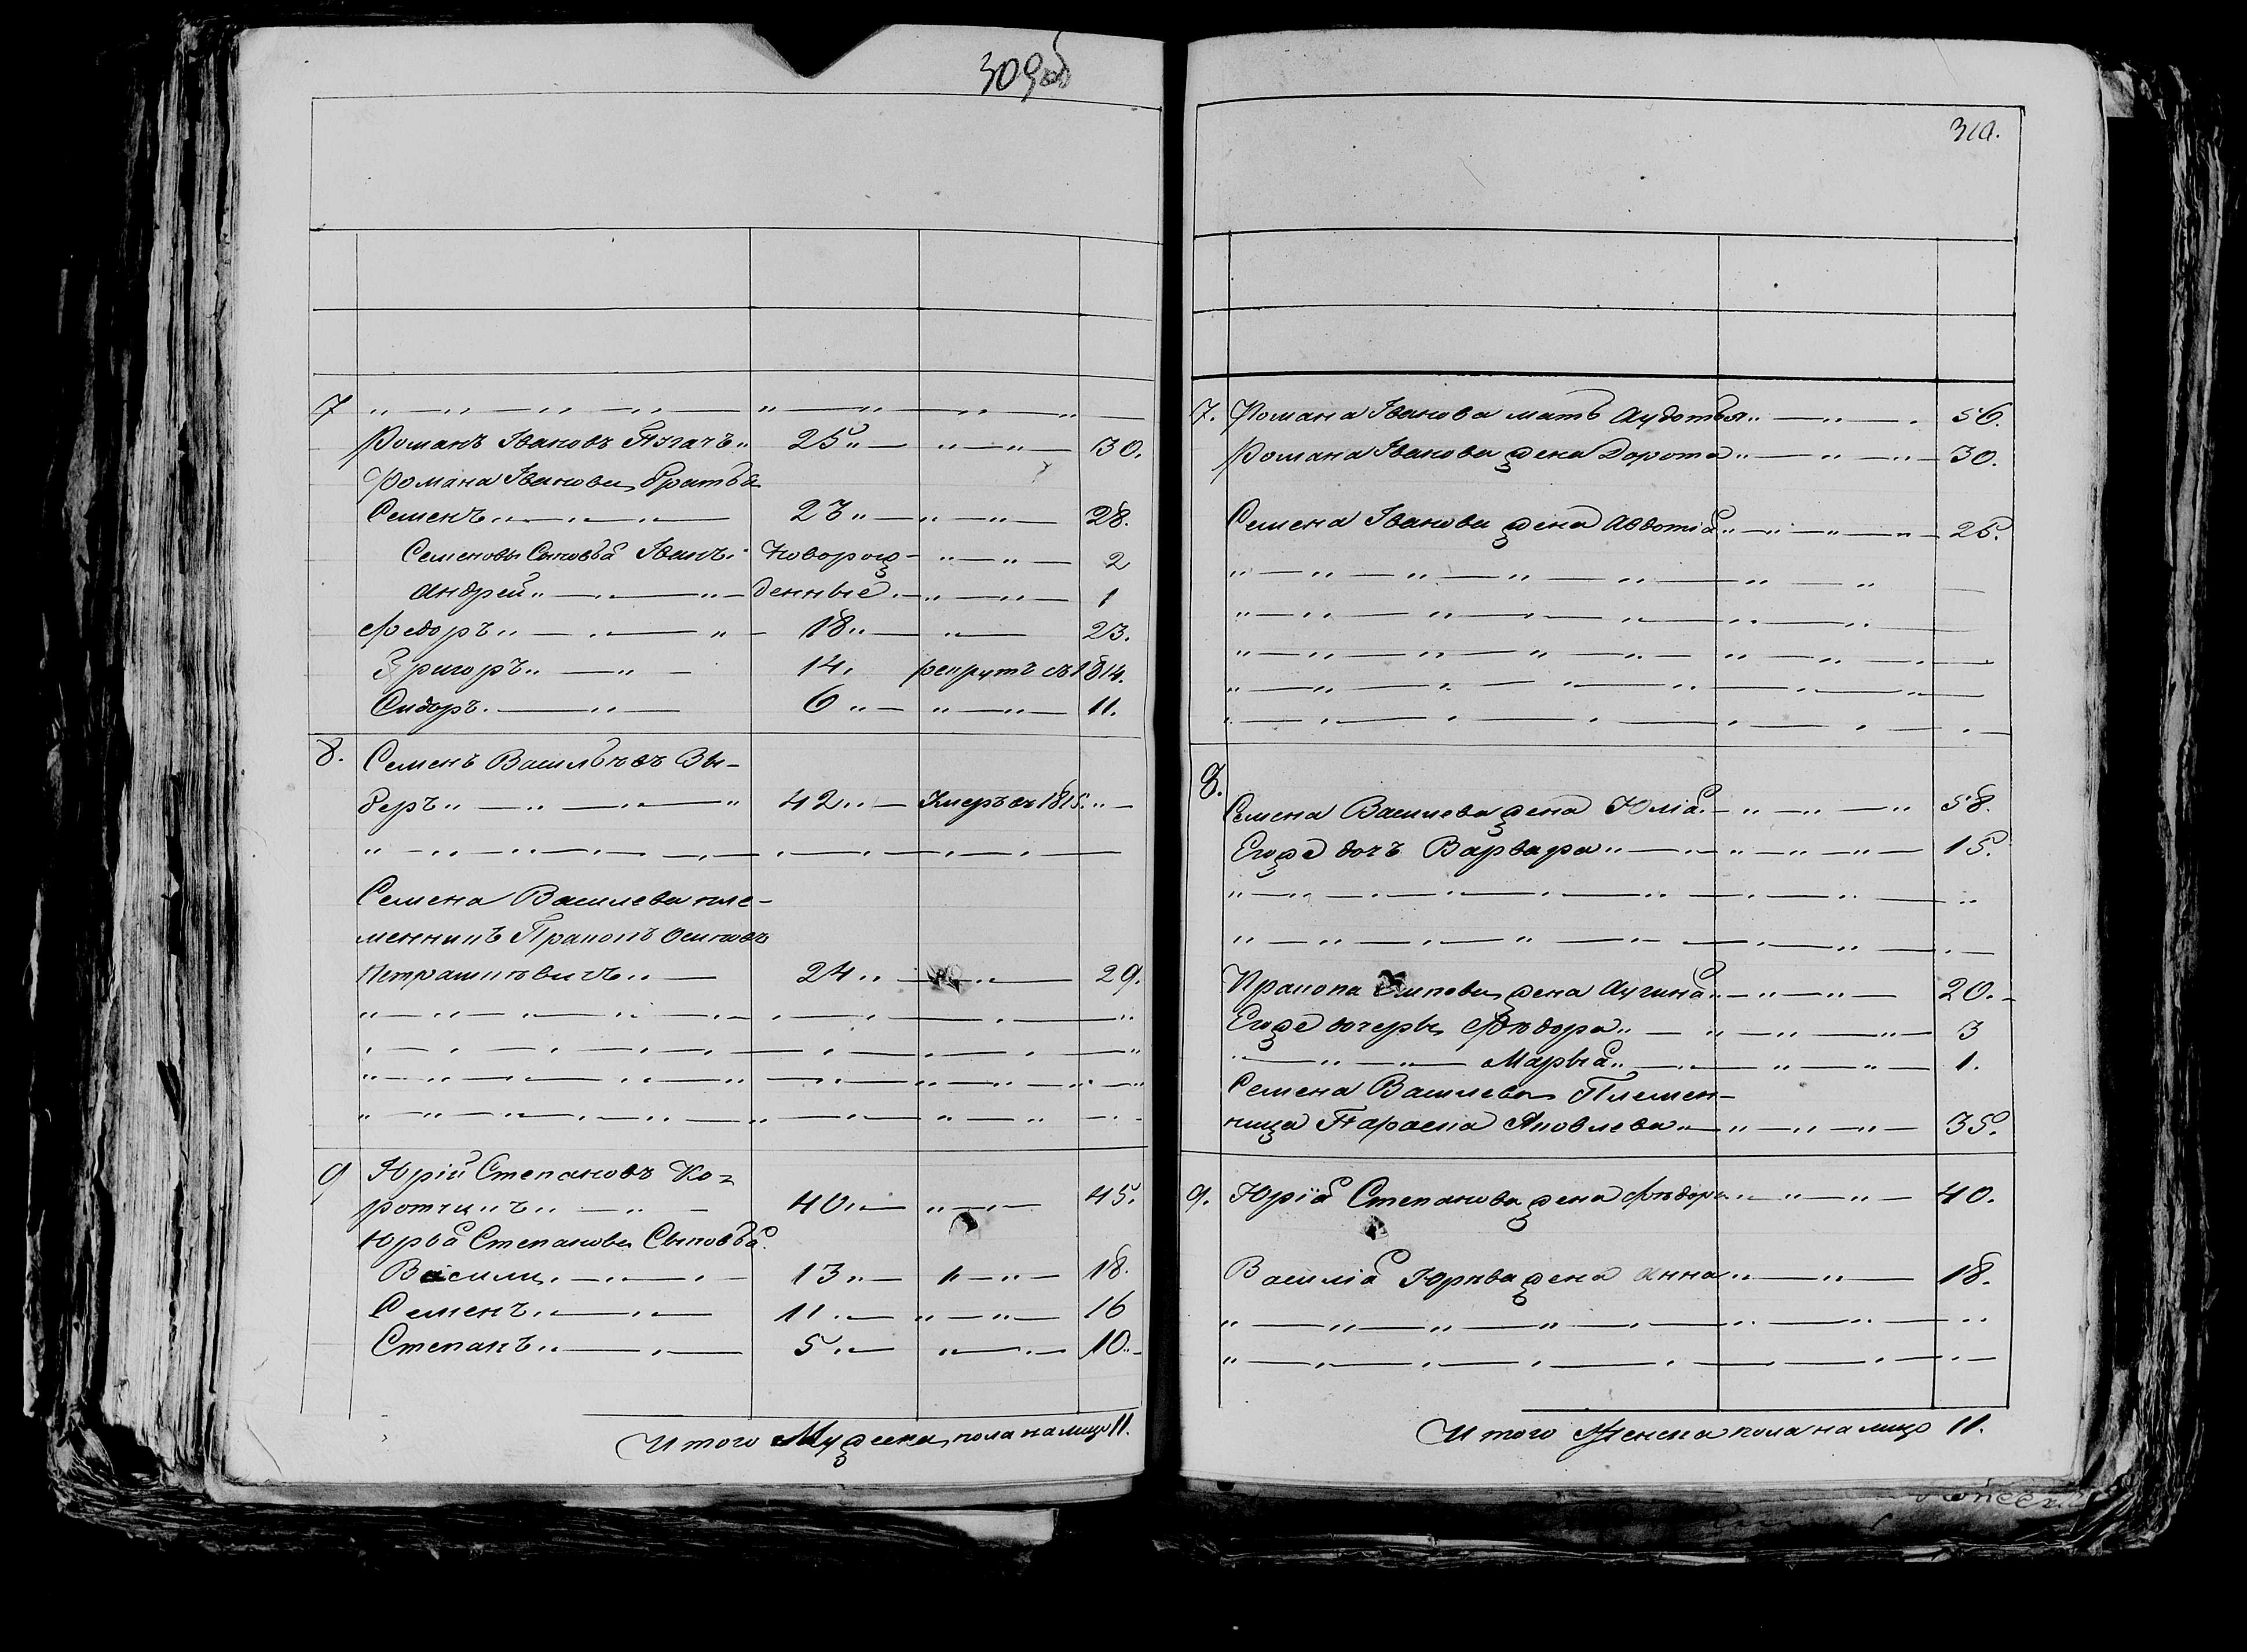 309об
7
Романъ Ивановъ Пугачъ 25 30.
Романа Иванова братья
Семенъ 23 28.
Семеновы Сыновья Иванъ Новорож- 2
Андрей денные 1
Федоръ 18 23.
Григоръ 14. рекрутъ въ 1814.
Сидоръ 6 11.
8. Семенъ Васильевъ Зы-
беръ 42 Умеръ въ 1815.
Семена Василева пле-
менникъ Пракопъ Осиповъ
24 29.
9 Юрій Степановъ Ко-
ротчикъ 40 45.
Юрья Степанова Сыновья
Васили 13 18.
Семенъ 11 16
Степанъ 5 10.
Итого Мужеска пола на лицо 11.
310.
7. Романа Иванова мать Аудотья 56.
Романа Иванова жена Дорота 30.
Семена Иванова жена Авдотія 25.
8.
Семена Василева жена Юлія 58.
Егоже дочъ Варвара 15.
Пракопа Осипова жена 20.
Егоже дочеры Ѳѣдора 3
Марыя 1.
Семена Василева Племен-
ница Параска Яковлева 35.
9. Юрія Степанова жена Ѳѣдора 40.
Василія Юрьва жена Анна 18.
Итого Женска пола на лицо 11.